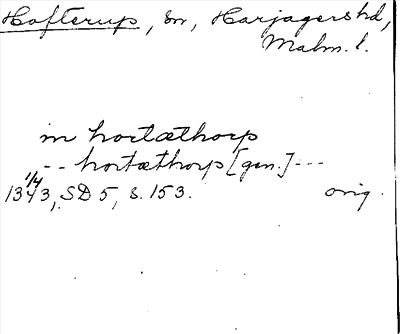 Hofterup, sn, Harjagers hd,
Malm. l.
in hortæthorp
-- hortæthorp [gen.] ---
1343 1/4, SD 5, s. 153. orig.